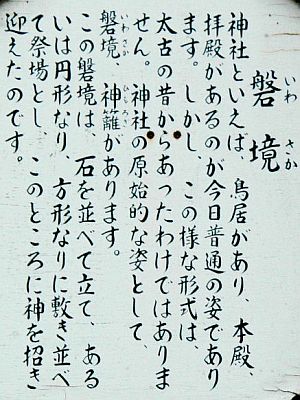 磐境
いわ さか
神社といえば、鳥居があり、本殿、
拝殿があるのが今日普通の姿であり
ます。しかし、この様な形式は、
太古の昔からあったわけではありま
せん。神社の原始的な姿として、
磐境、神籬があります。
いわさか ひもろぎ
この磐境は、石を並べて立て、ある
いは円形なり、方形なりに敷き並べ
て祭場とし、このところに神を招き
迎えたのです。